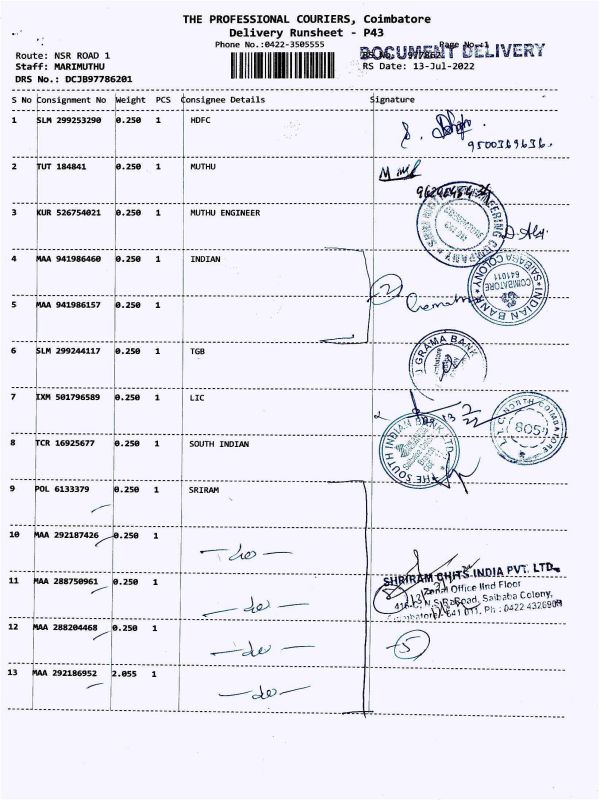 THE PROFESSIONAL COURIERS, Coimbatore
Delivery Runsheet - P43
Phone No.:0422-3505555
Page No.:1
DOCUMENT DELIVERY
Route: NSR ROAD 1
Staff: MARIMUTHU
RS Date: 13-Jul-2022
DRS No.: DCJB97786201
S No Consignment No Weight PCS Consignee Details Signature
1 SLM 299253290 0.250 1 HDFC
9500369636.
2 TUT 184841 0.250 1 MUTHU
3 KUR 526754021 0.250 1 MUTHU ENGINEER
4 MAA 941986460 0.250 1 INDIAN
INDIAN BANK
SAIBABA COLONY
COIMBATORE
641011
2
5 MAA 941986157 0.250 1
6 SLM 299244117 0.250 1 TGB
GRAMA BANK
7 IXM 501796589 0.250 1 LIC
8 TCR 16925677 0.250 1 SOUTH INDIAN
THE SOUTH INDIAN BANK LTD.
9 POL 6133379 0.250 1 SRIRAM
10 MAA 292187426 0.250 1
-do-
11 MAA 288750961 0.250 1
-do-
SHRIRAM CHITS INDIA PVT. LTD.
Office IInd Floor
Road, Saibaba Colony,
641 011, Ph : 0422 4326909
12 MAA 288204468 0.250 1
-do-
5
13 MAA 292186952 2.055 1
-do-